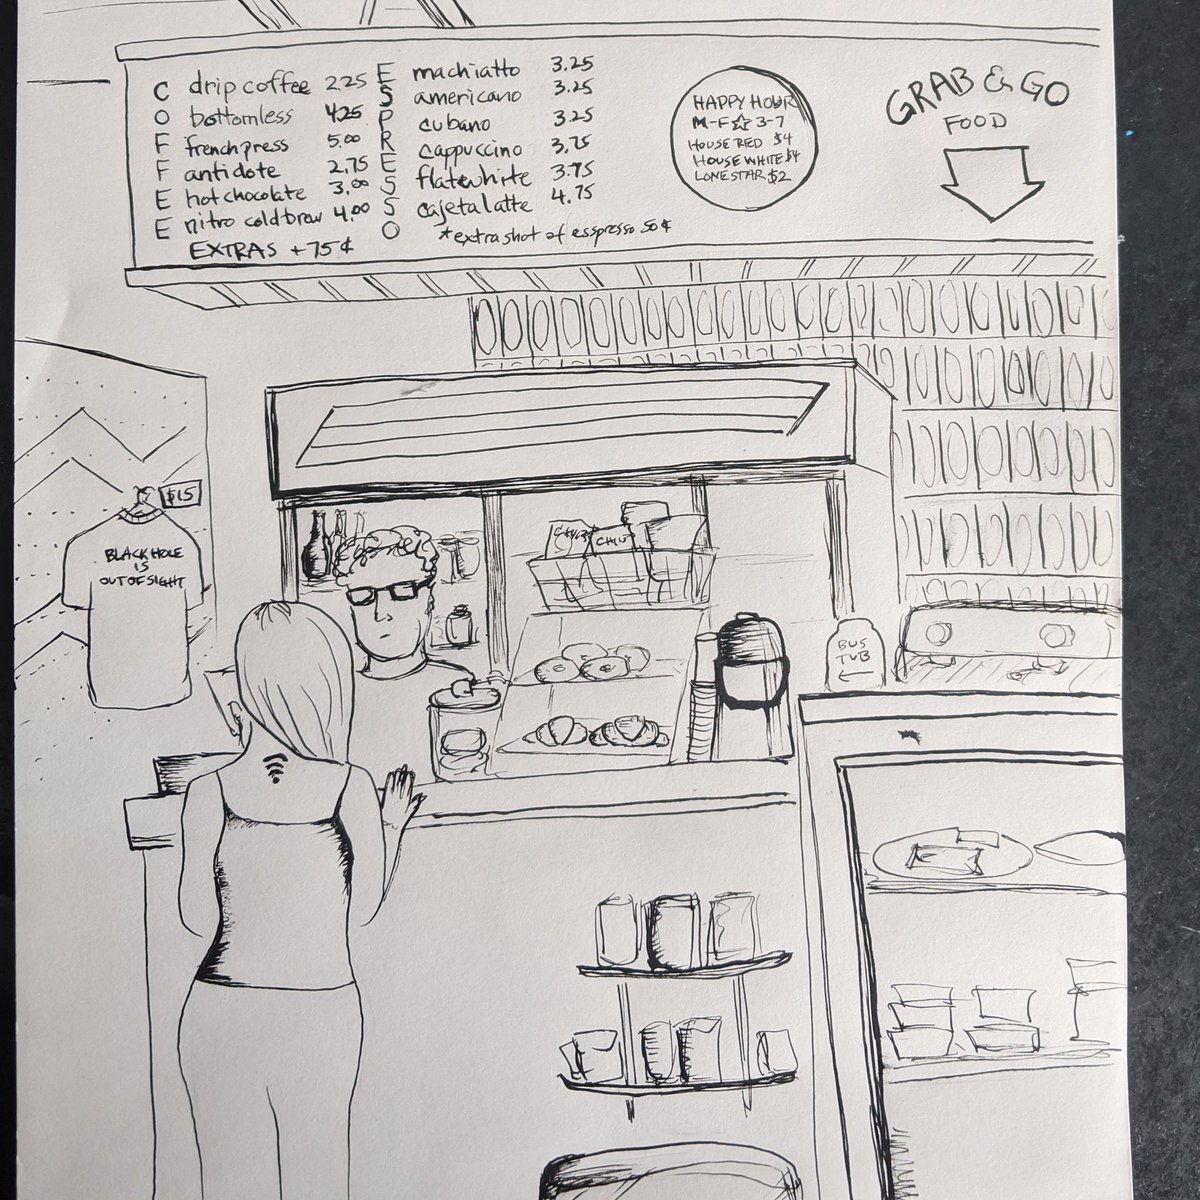 COFFEE
drip coffee 2.25
bottomless 4.25
french press 5.00
antidote 2.75
hot chocolate 3.00
nitro cold brew 4.00
EXTRAS +75¢
ESPRESSO
machiatto 3.25
americano 3.25
cubano 3.25
cappuccino 3.75
flatewhite 3.75
cajeta latte 4.75
*extra shot of esspresso 50¢
HAPPY HOUR
M-F☆3-7
HOUSE RED $4
HOUSE WHITE $4
LONESTAR $2
GRAB & GO
FOOD
$15
BLACK HOLE
IS
OUT OF SIGHT
BUS
TUB